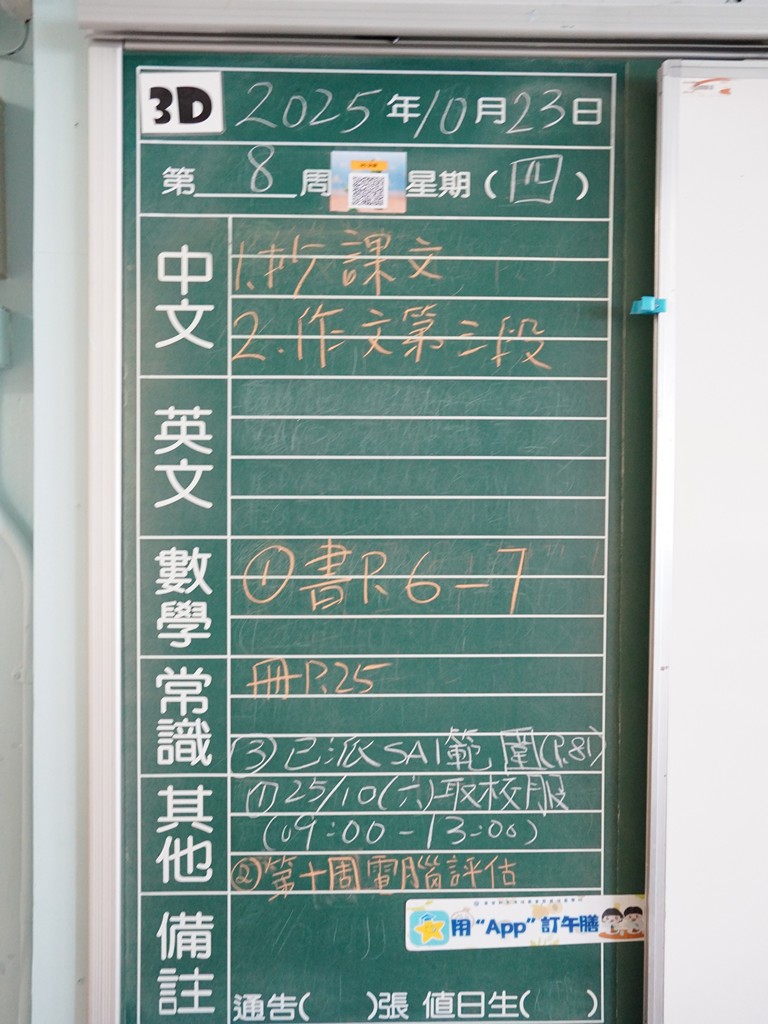 3D 2025年10月23日
第8周 星期(四)
中文
1.抄課文
2.作文第三段
英文
數學
①書P.6-7
常識
冊P.25
(3)已派SA1範圍(P.81)
其他
(1)25/10(六)取校服
(09:00-13:00)
②第十周電腦評估
備註
用“App”訂午膳
通告( )張 值日生( )